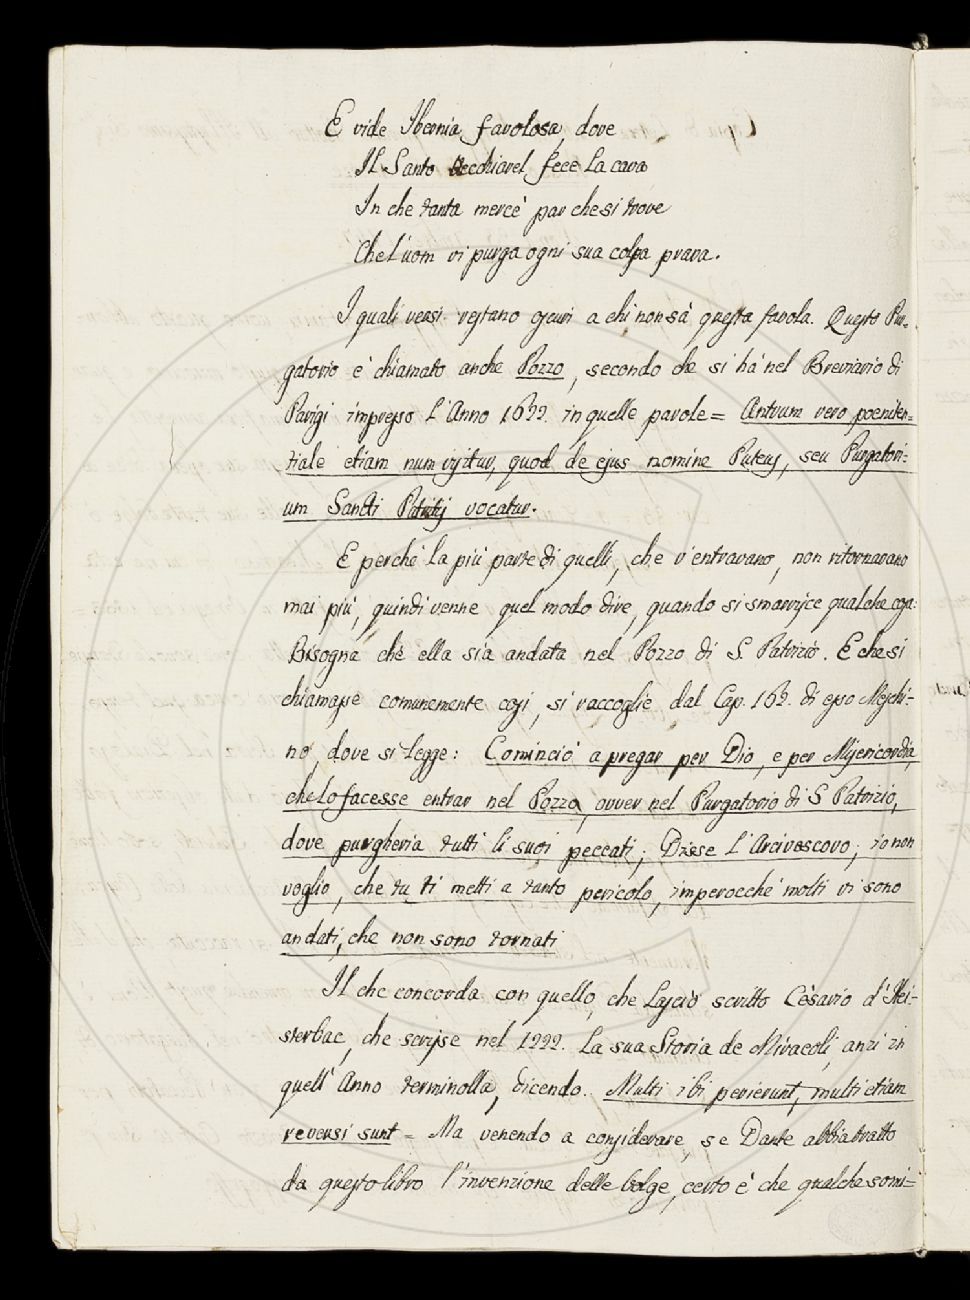 E vide Ibernia favolosa, dove
Il Santo Vecchiarel fece la cava
In che tanta mercè par che si trove
Che l'uom vi purga ogni sua colpa prava.
I quali versi restano oscuri a chi non sà questa favola. Questo Pur-
gatorio è chiamato anche Pozzo, secondo che si hà nel Breviario di
Parigi impresso l'Anno 1622. in quelle parole = Antrum vero poeniten=
tiale etiam num visitur, quod de ejus nomine Puteus, seu Purgatori-
um Sancti Patritij vocatur.
E perchè la più parte di quelli, che v'entravano, non ritornavano
mai più, quindi venne quel modo dire, quando si smarrisce qualche cosa:
Bisogna chè ella sia andata nel Pozzo di S. Patrizio. E che si
chiamasse comunemente così, si raccoglie dal Cap. 162. di esso Meschi-
no, dove si legge: Cominciò a pregar per Dio, e per Misericordia,
che lo facesse entrar nel Pozzo, ovver nel Purgatorio di S. Patrizio,
dove purgheria tutti li suoi peccati; Disse l'Arcivescovo; io non
voglio, che tu ti metti a tanto pericolo, imperocchè molti vi sono
andati, che non sono tornati
Il che concorda con quello, che lasciò scritto Cèsario d'Hei-
sterbac, che scrisse nel 1222. La sua Storia de Miracoli, anzi in
quell'Anno terminolla, dicendo. Multi ibi perierunt, multi etiam
reversi sunt = Ma venendo a considerare, se Dante abbia tratto
da questo libro l'invenzione delle bolge, certo è che qualche somi=